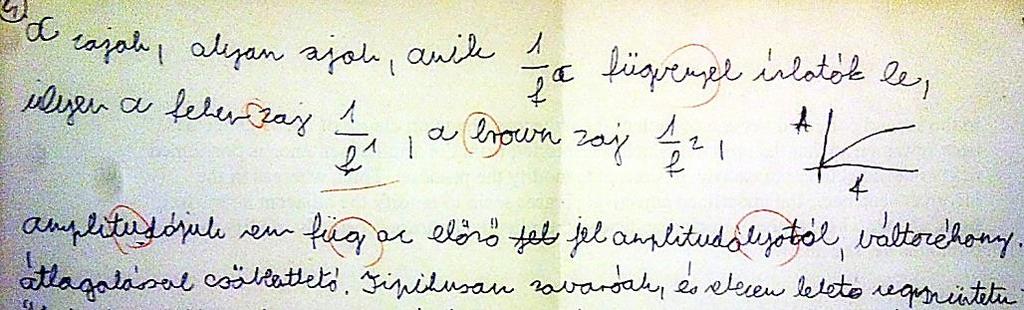 a zajok, olyan ajok, amik 1/fα fügvényel írlatók le,
ilyen a feher zaj 1/f1, a brown zaj 1/f2, A f
amplitudójuk em füg az előző jel amplitudójotól, változékony.
átlagolással csökkettető. Tipikusan zavaróak, és